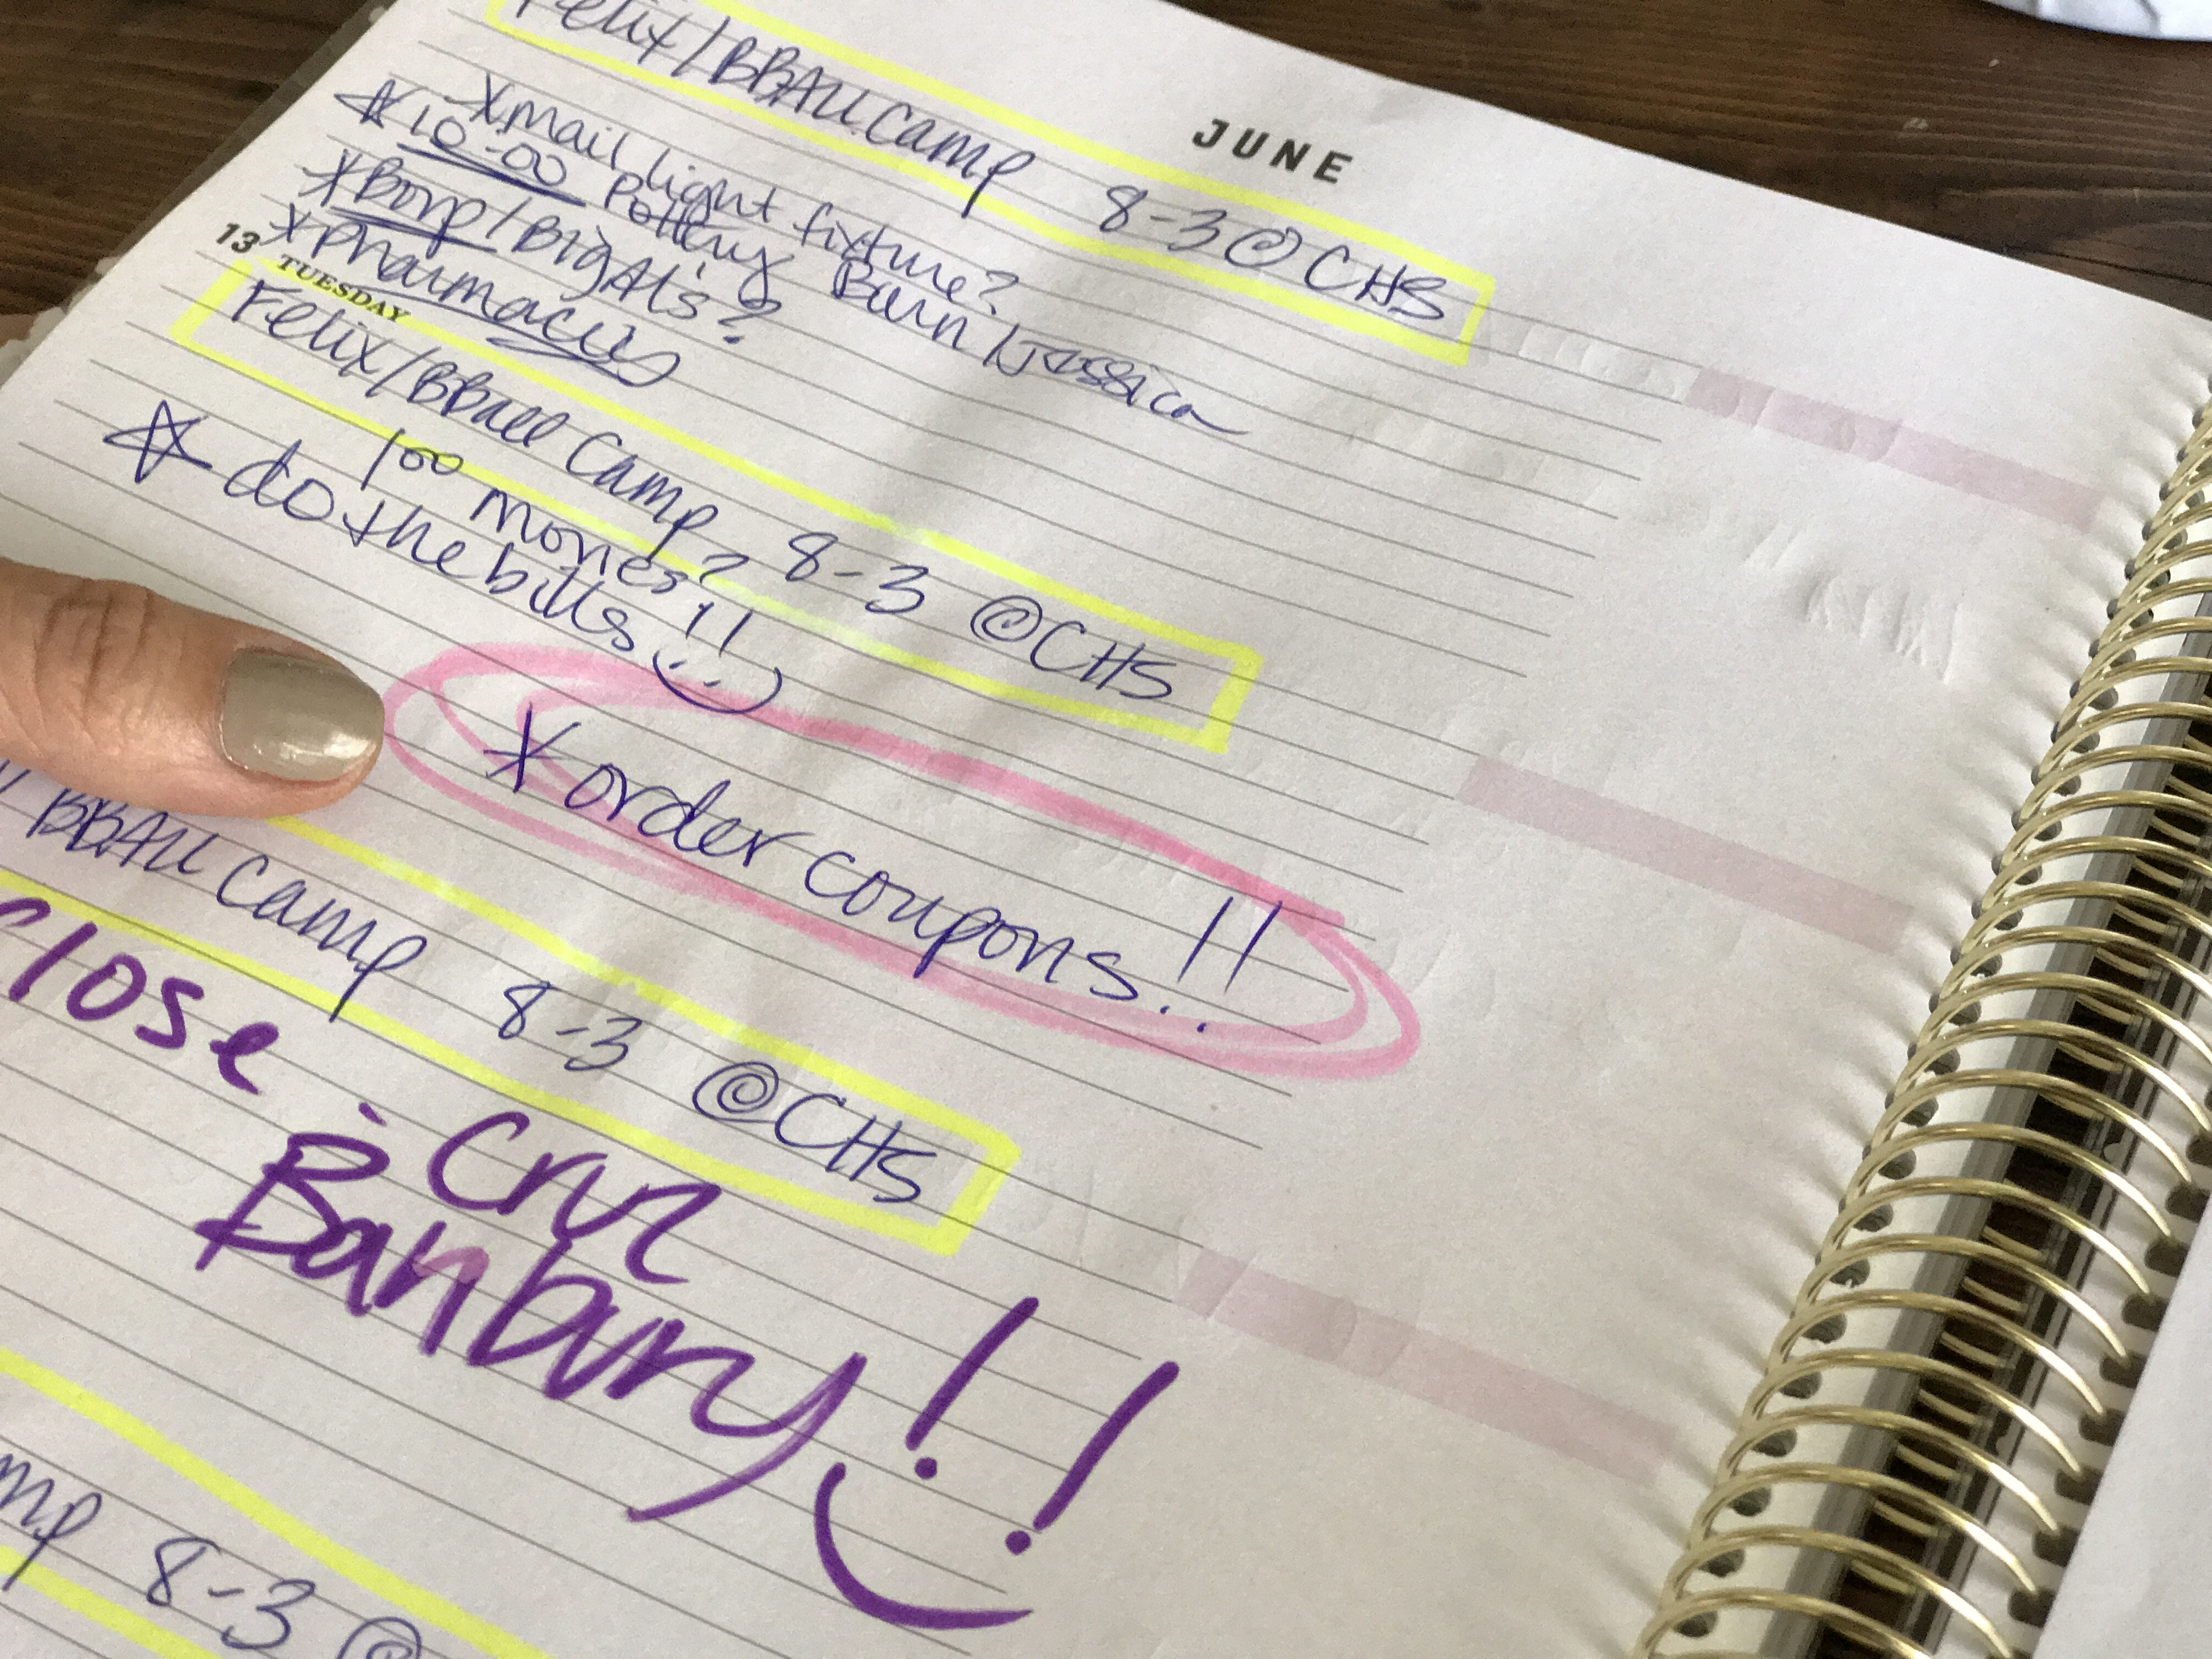 Felix/BBAll camp 8-3 @ CHS
JUNE
*mail light fixture?
10:00 Pottery Barn / Jessica
*Borp/Big Al's?
*pharmacies
13 TUESDAY
Felix/BBall Camp 8-3 @CHS
100 mones?
do the bills!!
*order coupons!!
BBAll Camp 8-3 @CHS
close
- Cruz
Banbury!!
mp 8-3 @